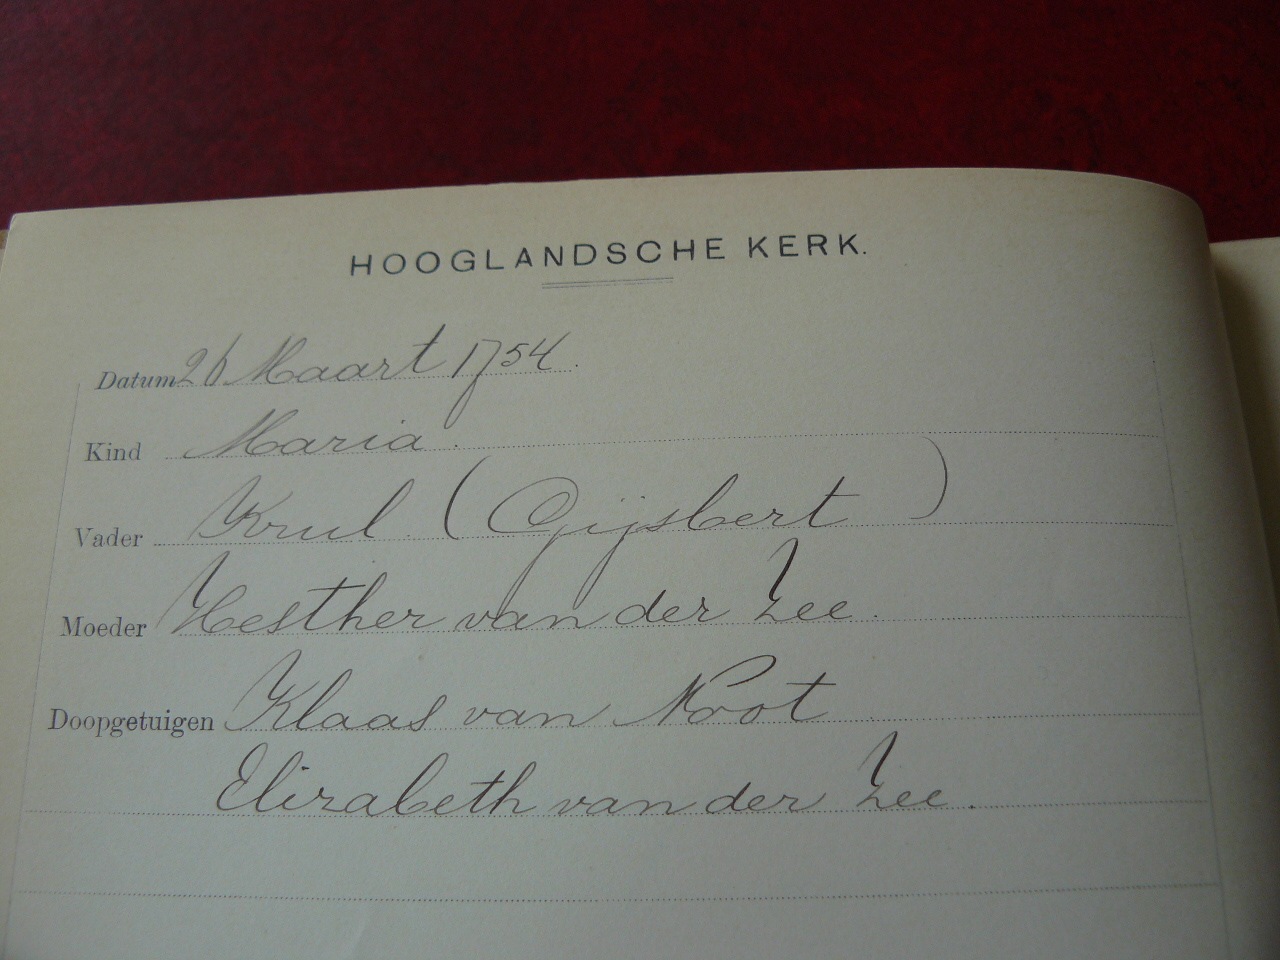 HOOGLANDSCHE KERK.
Datum 26 Maart 1754.
Kind Maria.
Vader Krul. (Gijsbert)
Moeder Hesther van der Zee.
Doopgetuigen Klaas van Noot
Elizabeth van der Zee.